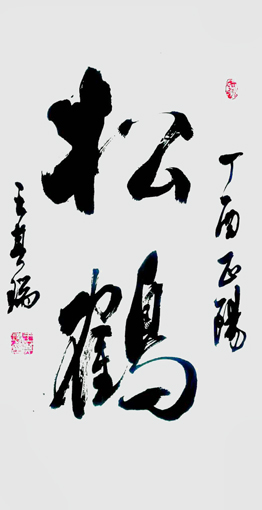 丁酉正陽
松鶴
王其瑞